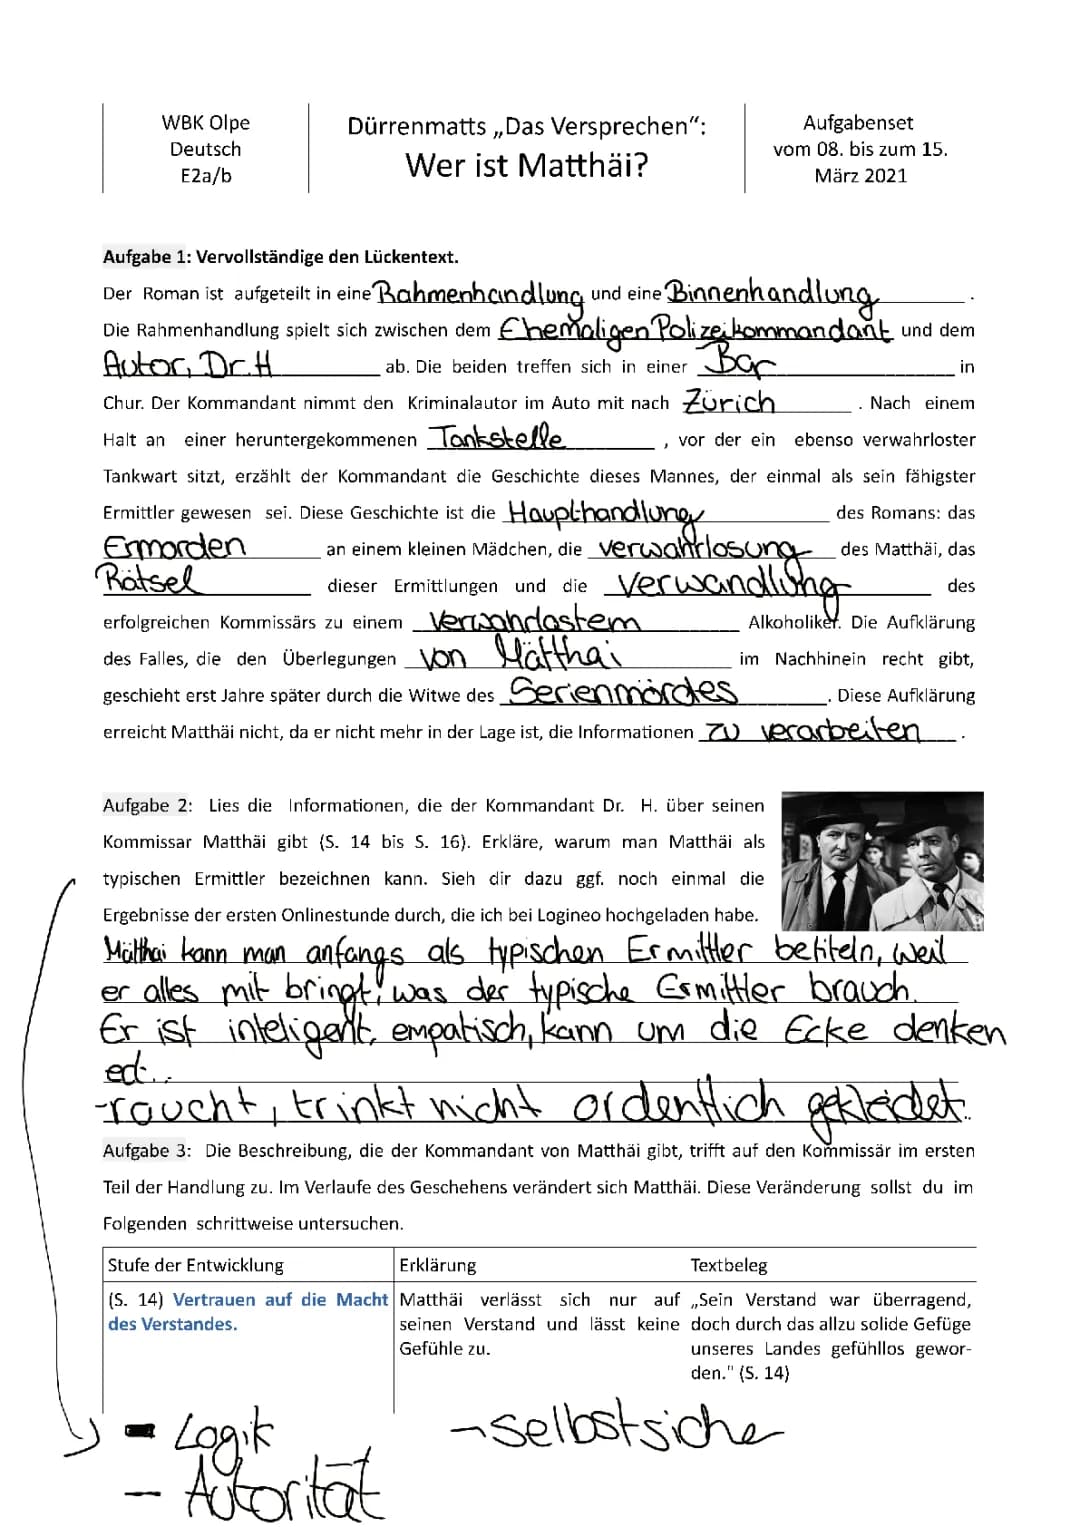 WBK Olpe
Deutsch
E2a/b
Dürrenmatts „Das Versprechen“:
Wer ist Matthäi?
Aufgabenset
vom 08. bis zum 15.
März 2021
Aufgabe 1: Vervollständige den Lückentext.
Der Roman ist aufgeteilt in eine Rahmenhandlung und eine Binnenhandlung.
Die Rahmenhandlung spielt sich zwischen dem Ehemaligen Polizeikommandant und dem
Autor, Dr.H ab. Die beiden treffen sich in einer Bar in
Chur. Der Kommandant nimmt den Kriminalautor im Auto mit nach Zürich. Nach einem
Halt an einer heruntergekommenen Tankstelle, vor der ein ebenso verwahrloster
Tankwart sitzt, erzählt der Kommandant die Geschichte dieses Mannes, der einmal als sein fähigster
Ermittler gewesen sei. Diese Geschichte ist die Haupthandlung des Romans: das
Ermorden an einem kleinen Mädchen, die verwahrlosung des Matthäi, das
Rätsel dieser Ermittlungen und die verwandlung des
erfolgreichen Kommissärs zu einem Verwahrlostem Alkoholiker. Die Aufklärung
des Falles, die den Überlegungen von Mätthai im Nachhinein recht gibt,
geschieht erst Jahre später durch die Witwe des Serienmördes. Diese Aufklärung
erreicht Matthäi nicht, da er nicht mehr in der Lage ist, die Informationen zu verarbeiten.
Aufgabe 2: Lies die Informationen, die der Kommandant Dr. H. über seinen
Kommissar Matthäi gibt (S. 14 bis S. 16). Erkläre, warum man Matthäi als
typischen Ermittler bezeichnen kann. Sieh dir dazu ggf. noch einmal die
Ergebnisse der ersten Onlinestunde durch, die ich bei Logineo hochgeladen habe.
Mätthai kann man anfangs als typischen Ermittler betiteln, weil
er alles mit bringt, was der typische Ermittler brauch.
Er ist inteligent, empatisch, kann um die Ecke denken
ect..
-raucht, trinkt nicht ordentlich gekleidet.
Aufgabe 3: Die Beschreibung, die der Kommandant von Matthäi gibt, trifft auf den Kommissär im ersten
Teil der Handlung zu. Im Verlaufe des Geschehens verändert sich Matthäi. Diese Veränderung sollst du im
Folgenden schrittweise untersuchen.
Stufe der Entwicklung Erklärung Textbeleg
(S. 14) Vertrauen auf die Macht Matthäi verlässt sich nur auf „Sein Verstand war überragend,
des Verstandes. seinen Verstand und lässt keine doch durch das allzu solide Gefüge
Gefühle zu. unseres Landes gefühllos gewor-
den." (S. 14)
- Logik -selbstsiche
- Autorität